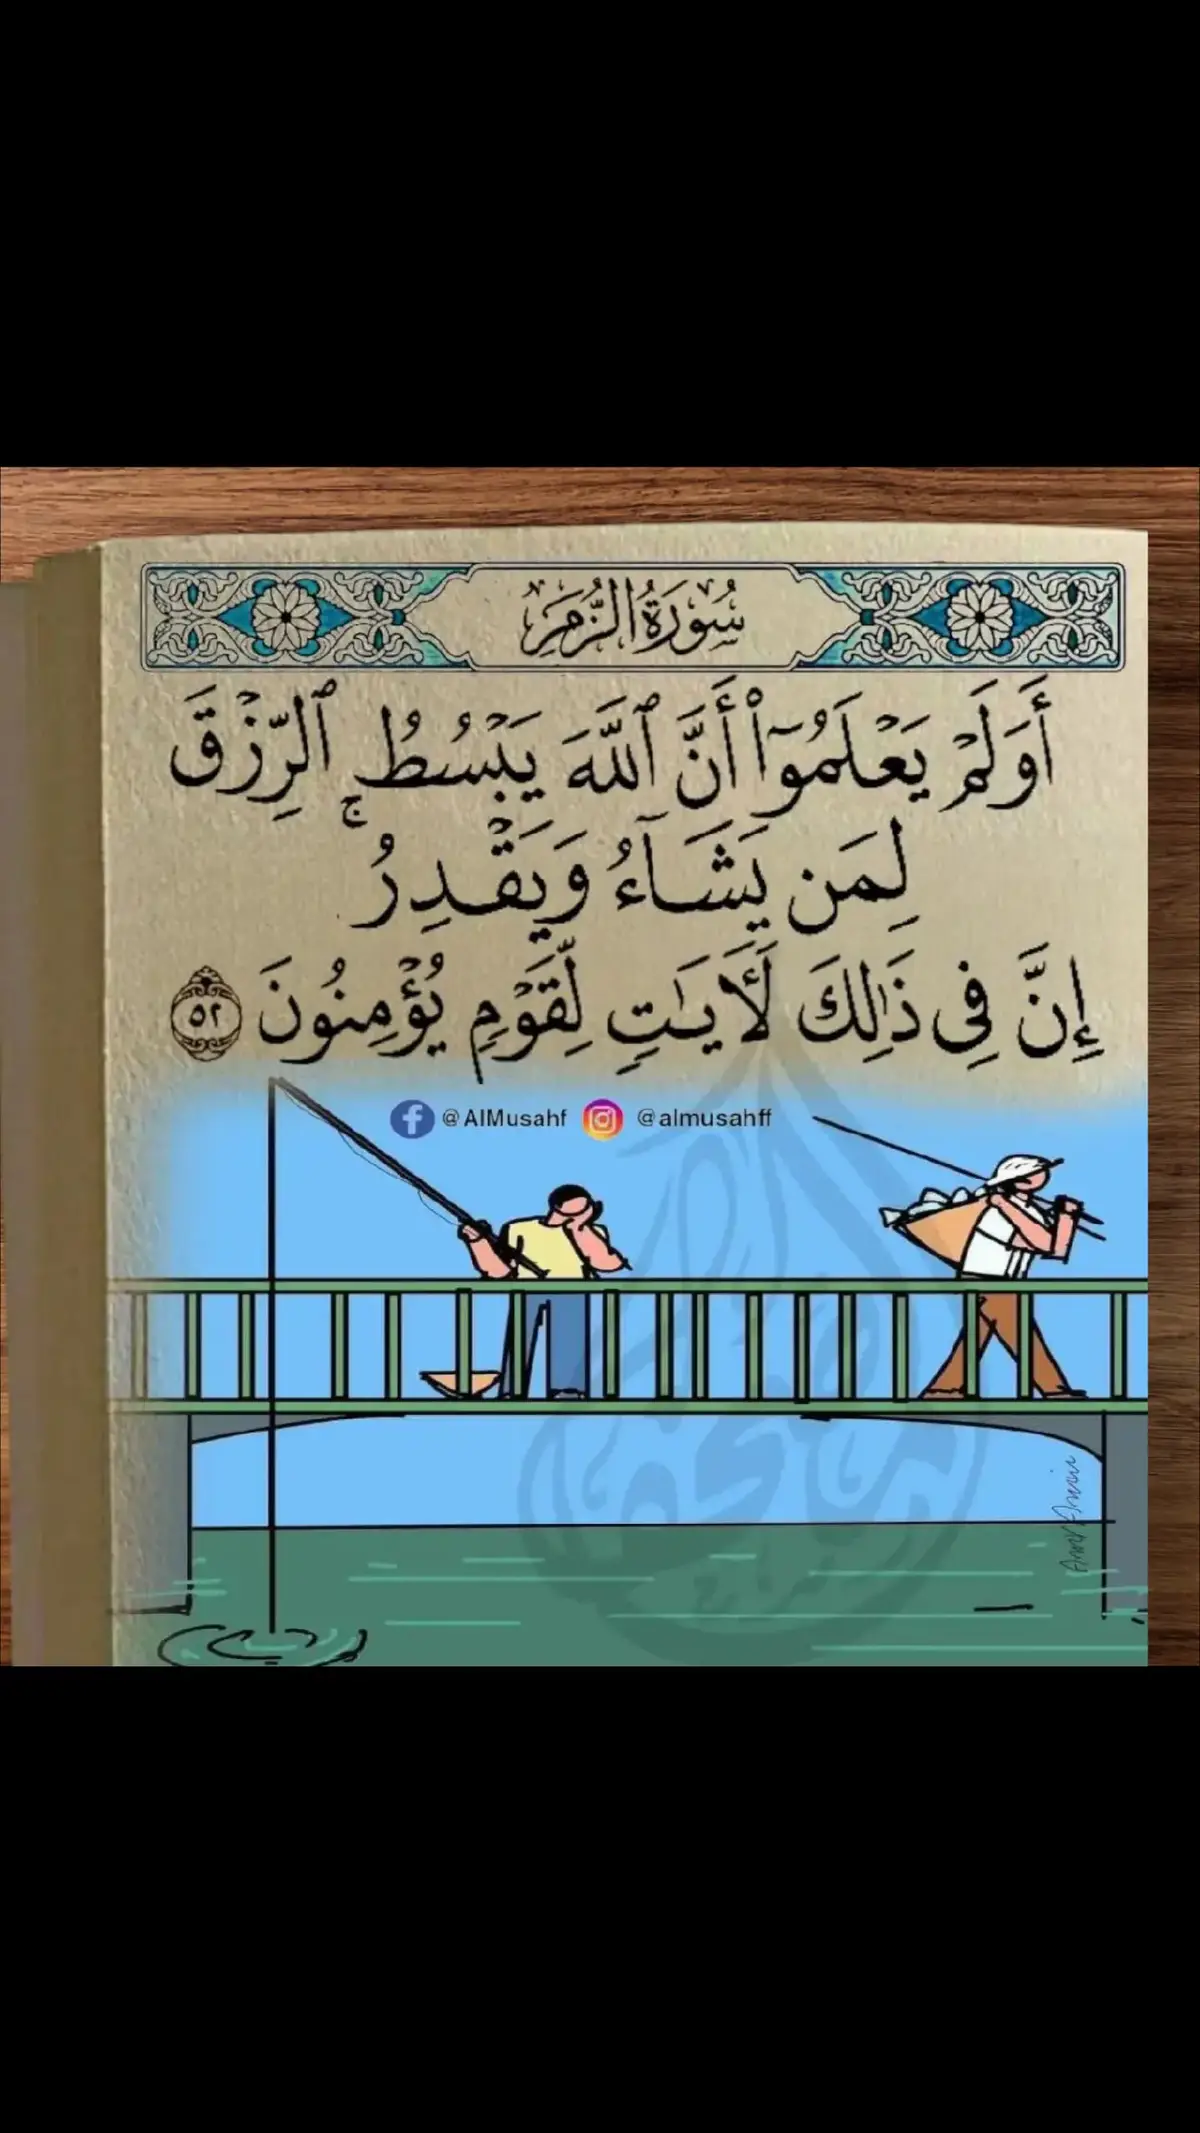 سُورَةُ الزُّمَرِ
أَوَلَمْ يَعْلَمُوٓا۟ أَنَّ ٱللَّهَ يَبْسُطُ ٱلرِّزْقَ
لِمَن يَشَآءُ وَيَقْدِرُ ۚ
إِنَّ فِى ذَٰلِكَ لَـَٔايَـٰتٍ لِّقَوْمٍ يُؤْمِنُونَ ٥٢
@AlMusahf @almusahff
Amr Amin